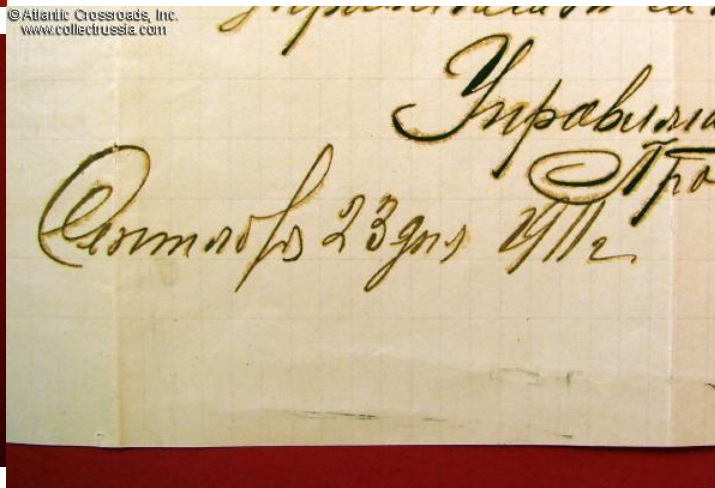 © Atlantic Crossroads, Inc.
www.collectrussia.com
Управляю
Сентября 23 дня 1911 г.